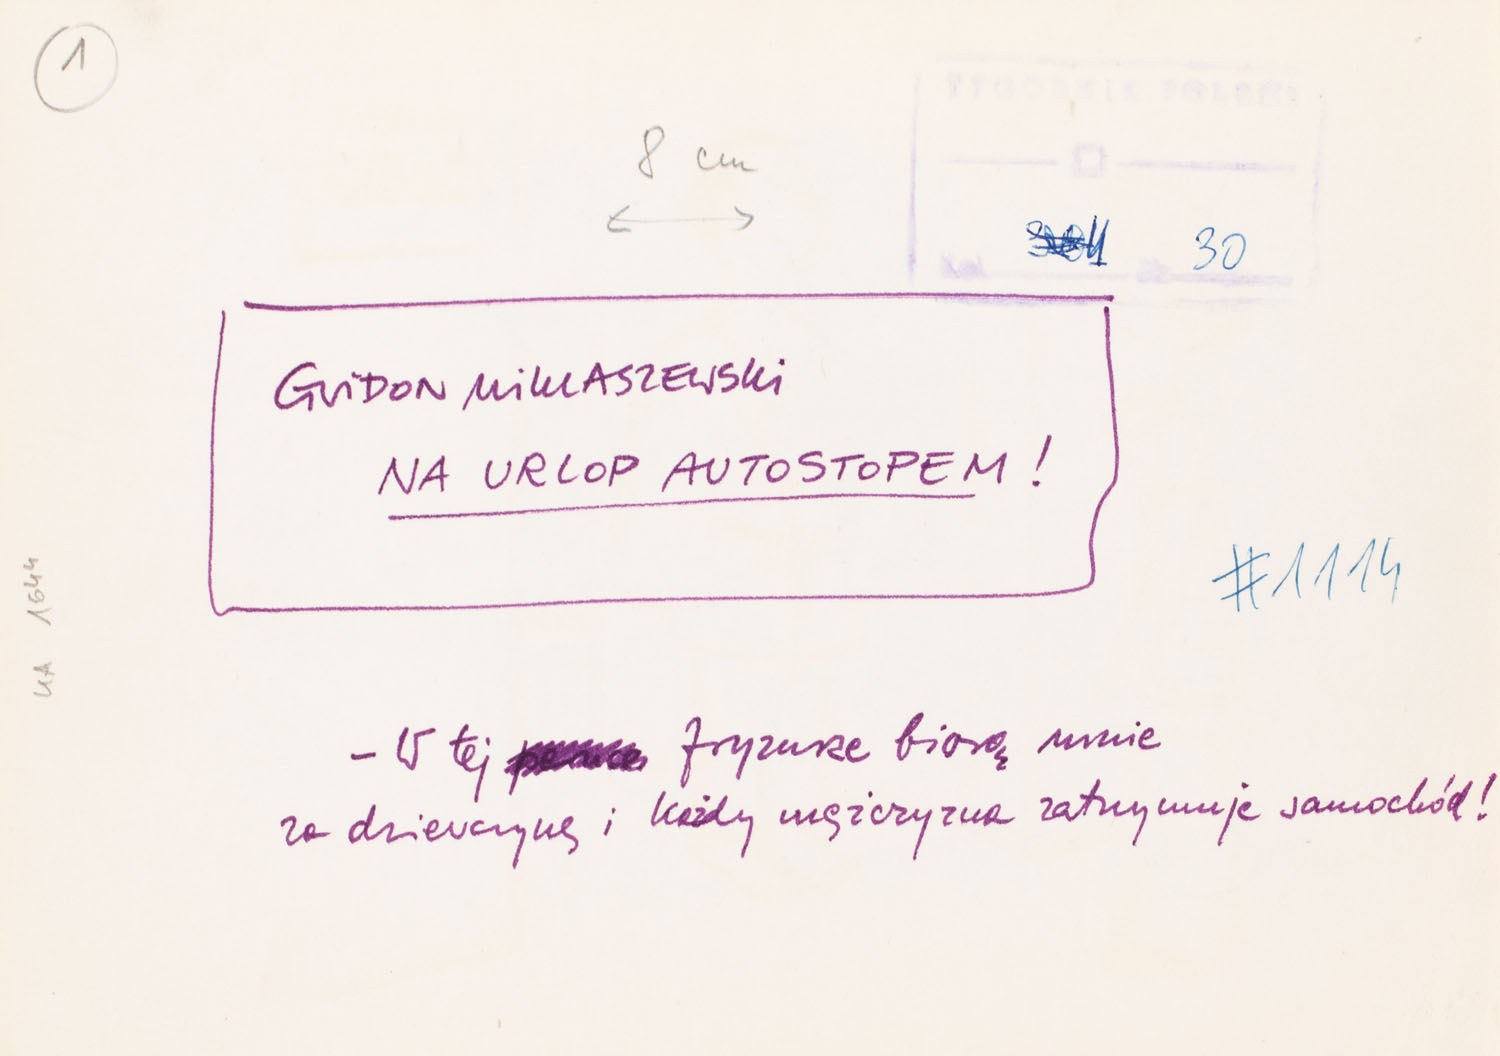 1
8 cm
TYGODNIK POLSKI
30
GWIDON MIKLASZEWSKI
NA URLOP AUTOSTOPEM!
#1114
UA 1644
– W tej fryzurze biorą mnie
za dziewczynę i każdy mężczyzna zatrzymuje samochód!